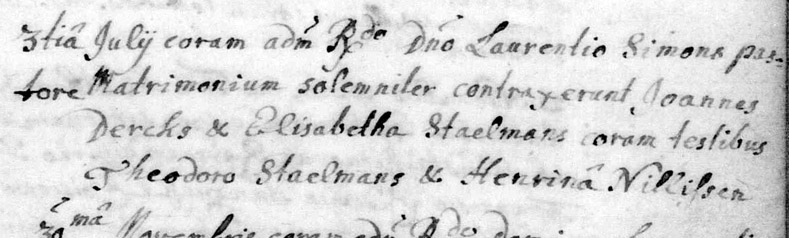 3tiâ Julÿ coram adm̃ Rdo Dño Laurentio Simons pas-
tore Matrimonium solemniter contraxerunt Joannes
Dercks & Elisabetha Staelmans coram testibus
Theodoro Staelmans & Henrinâ Nillissen
30mâ Novembris coram adm̃ Rdo